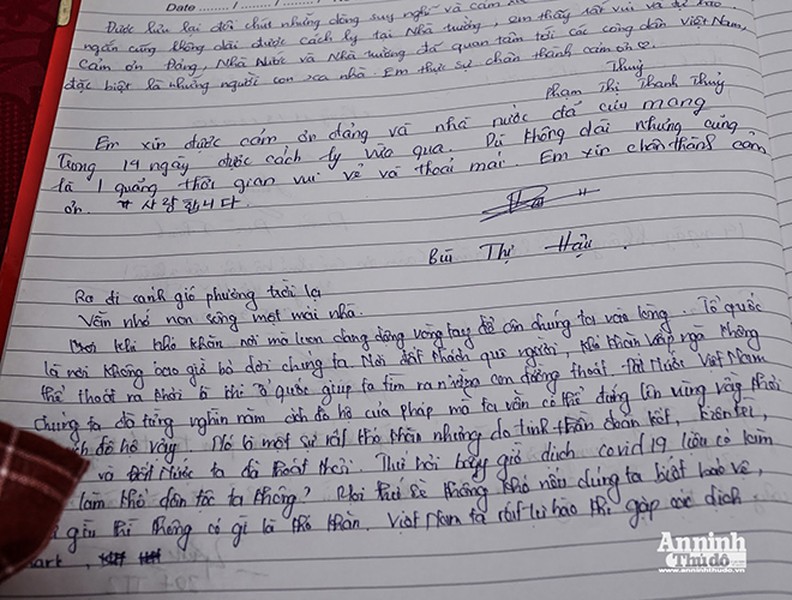 Date ......./......./.......
Được lưu lại đôi chút những dòng suy nghĩ và cảm
ngắn cũng không dài được cách ly tại Nhà trường, em thấy rất vui và tự hào.
Cảm ơn Đảng, Nhà Nước và Nhà trường đã quan tâm tới các công dân Việt Nam,
đặc biệt là những người con xa nhà. Em thực sự chân thành cảm ơn ♡.
Thuỷ
Phạm Thị Thanh Thuỷ
Em xin được cảm ơn đảng và nhà nước đã cưu mang
Trong 14 ngày được cách ly vừa qua. Dù không dài nhưng cũng
là 1 quãng thời gian vui vẻ và thoải mái. Em xin chân thành cảm
ơn. # 사랑합니다.
Bùi Thị Hậu.
Ra đi cánh gió phương trời lạ
Vẫn nhớ non sông một mái nhà.
khi khó khăn nơi mà luôn dang đông vòng tay để ôm chúng ta vào lòng. Tổ quốc
là nơi không bao giờ bỏ rơi chúng ta. Nơi đất khách quê người, khó khăn vấp ngã không
thể thoát ra khỏi thì Tổ quốc giúp ta tìm ra những con đường thoát. Đất Nước Việt Nam
chúng ta đã từng nghìn năm đô hộ của pháp mà ta vẫn có thể đứng lên vững vàng thoát
đô hộ vậy. Đó là một sự rất khó khăn nhưng do tinh thần đoàn kết, kiên trì,
và Đất Nước ta đã thoát khỏi. Thử hỏi bây giờ dịch covid 19 liệu có làm
làm khó dân tộc ta không? Mọi thứ sẽ không khó nếu chúng ta biết bảo vệ,
giữ thì không có gì là khó khăn. Việt Nam ta rất tự hào khi gặp các dịch
An ninh
Thủ đô
www.anninhthudo.vn